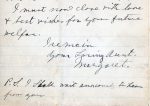 I must now close with love
& best wishes for your future
welfare.
I remain
Your Loving Aunt
Margaret.
P.S. I shall wait anxiously to hear
from you